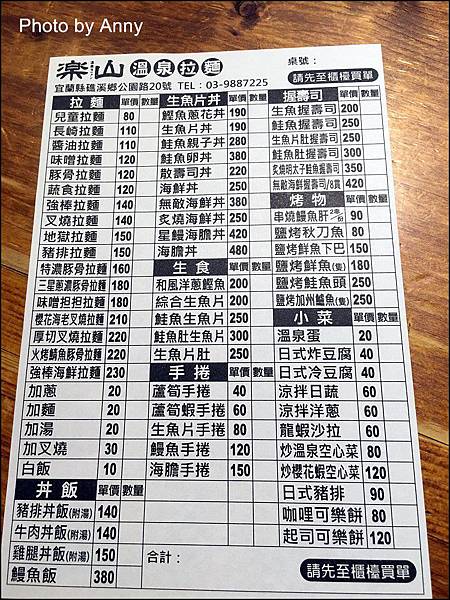 Photo by Anny
楽山 溫泉拉麵
桌號：
宜蘭縣礁溪鄉公園路20號 TEL：03-9887225
請先至櫃檯買單
拉麵 單價 數量
兒童拉麵 80
長崎拉麵 110
醬油拉麵 120
味噌拉麵 120
豚骨拉麵 120
蔬食拉麵 120
強棒拉麵 150
叉燒拉麵 150
地獄拉麵 150
豬排拉麵 150
特濃豚骨拉麵 160
三星蔥濃豚骨拉麵 180
味噌担担拉麵 180
櫻花海老叉燒拉麵 210
厚切叉燒拉麵 220
火烤鯛魚豚骨拉麵 220
強棒海鮮拉麵 230
加蔥 20
加麵 20
加湯 20
加叉燒 30
白飯 10
丼飯 單價 數量
豬排丼飯(附湯) 140
牛肉丼飯(附湯) 140
雞腿丼飯(附湯) 150
鰻魚飯 380
生魚片丼 單價 數量
鰹魚蔥花丼 190
生魚片丼 190
鮭魚親子丼 280
鮭魚卵丼 380
散壽司丼 220
海鮮丼 250
無敵海鮮丼 380
炙燒海鮮丼 250
星鰻海鮮丼 420
海膽丼 480
生食 單價 數量
和風洋蔥鰹魚 200
綜合生魚片 200
鮭魚生魚片 250
鮭魚肚生魚片 300
生魚片肚 250
手捲 單價 數量
蘆筍手捲 40
蘆筍蝦手捲 60
生魚片手捲 80
鰻魚手捲 120
海膽手捲 150
合計：
握壽司 單價 數量
生魚握壽司 200
鮭魚握壽司 250
生魚片肚握壽司 250
鮭魚肚握壽司 300
炙燒明太子鮭魚握壽司 350
無敵海鮮握壽司/8貫 420
烤物 單價 數量
串燒鰻魚肝2串/份 90
鹽烤秋刀魚 80
鹽烤鮮魚下巴 150
鹽烤鮮魚(隻) 180
鹽烤鮭魚頭 250
鹽烤加州鱸魚(隻) 250
小菜 單價 數量
溫泉蛋 20
日式炸豆腐 40
日式冷豆腐 40
涼拌日蔬 60
涼拌洋蔥 60
龍蝦沙拉 60
炒溫泉空心菜 80
炒櫻花蝦空心菜 120
日式豬排 90
咖哩可樂餅 80
起司可樂餅 120
請先至櫃檯買單